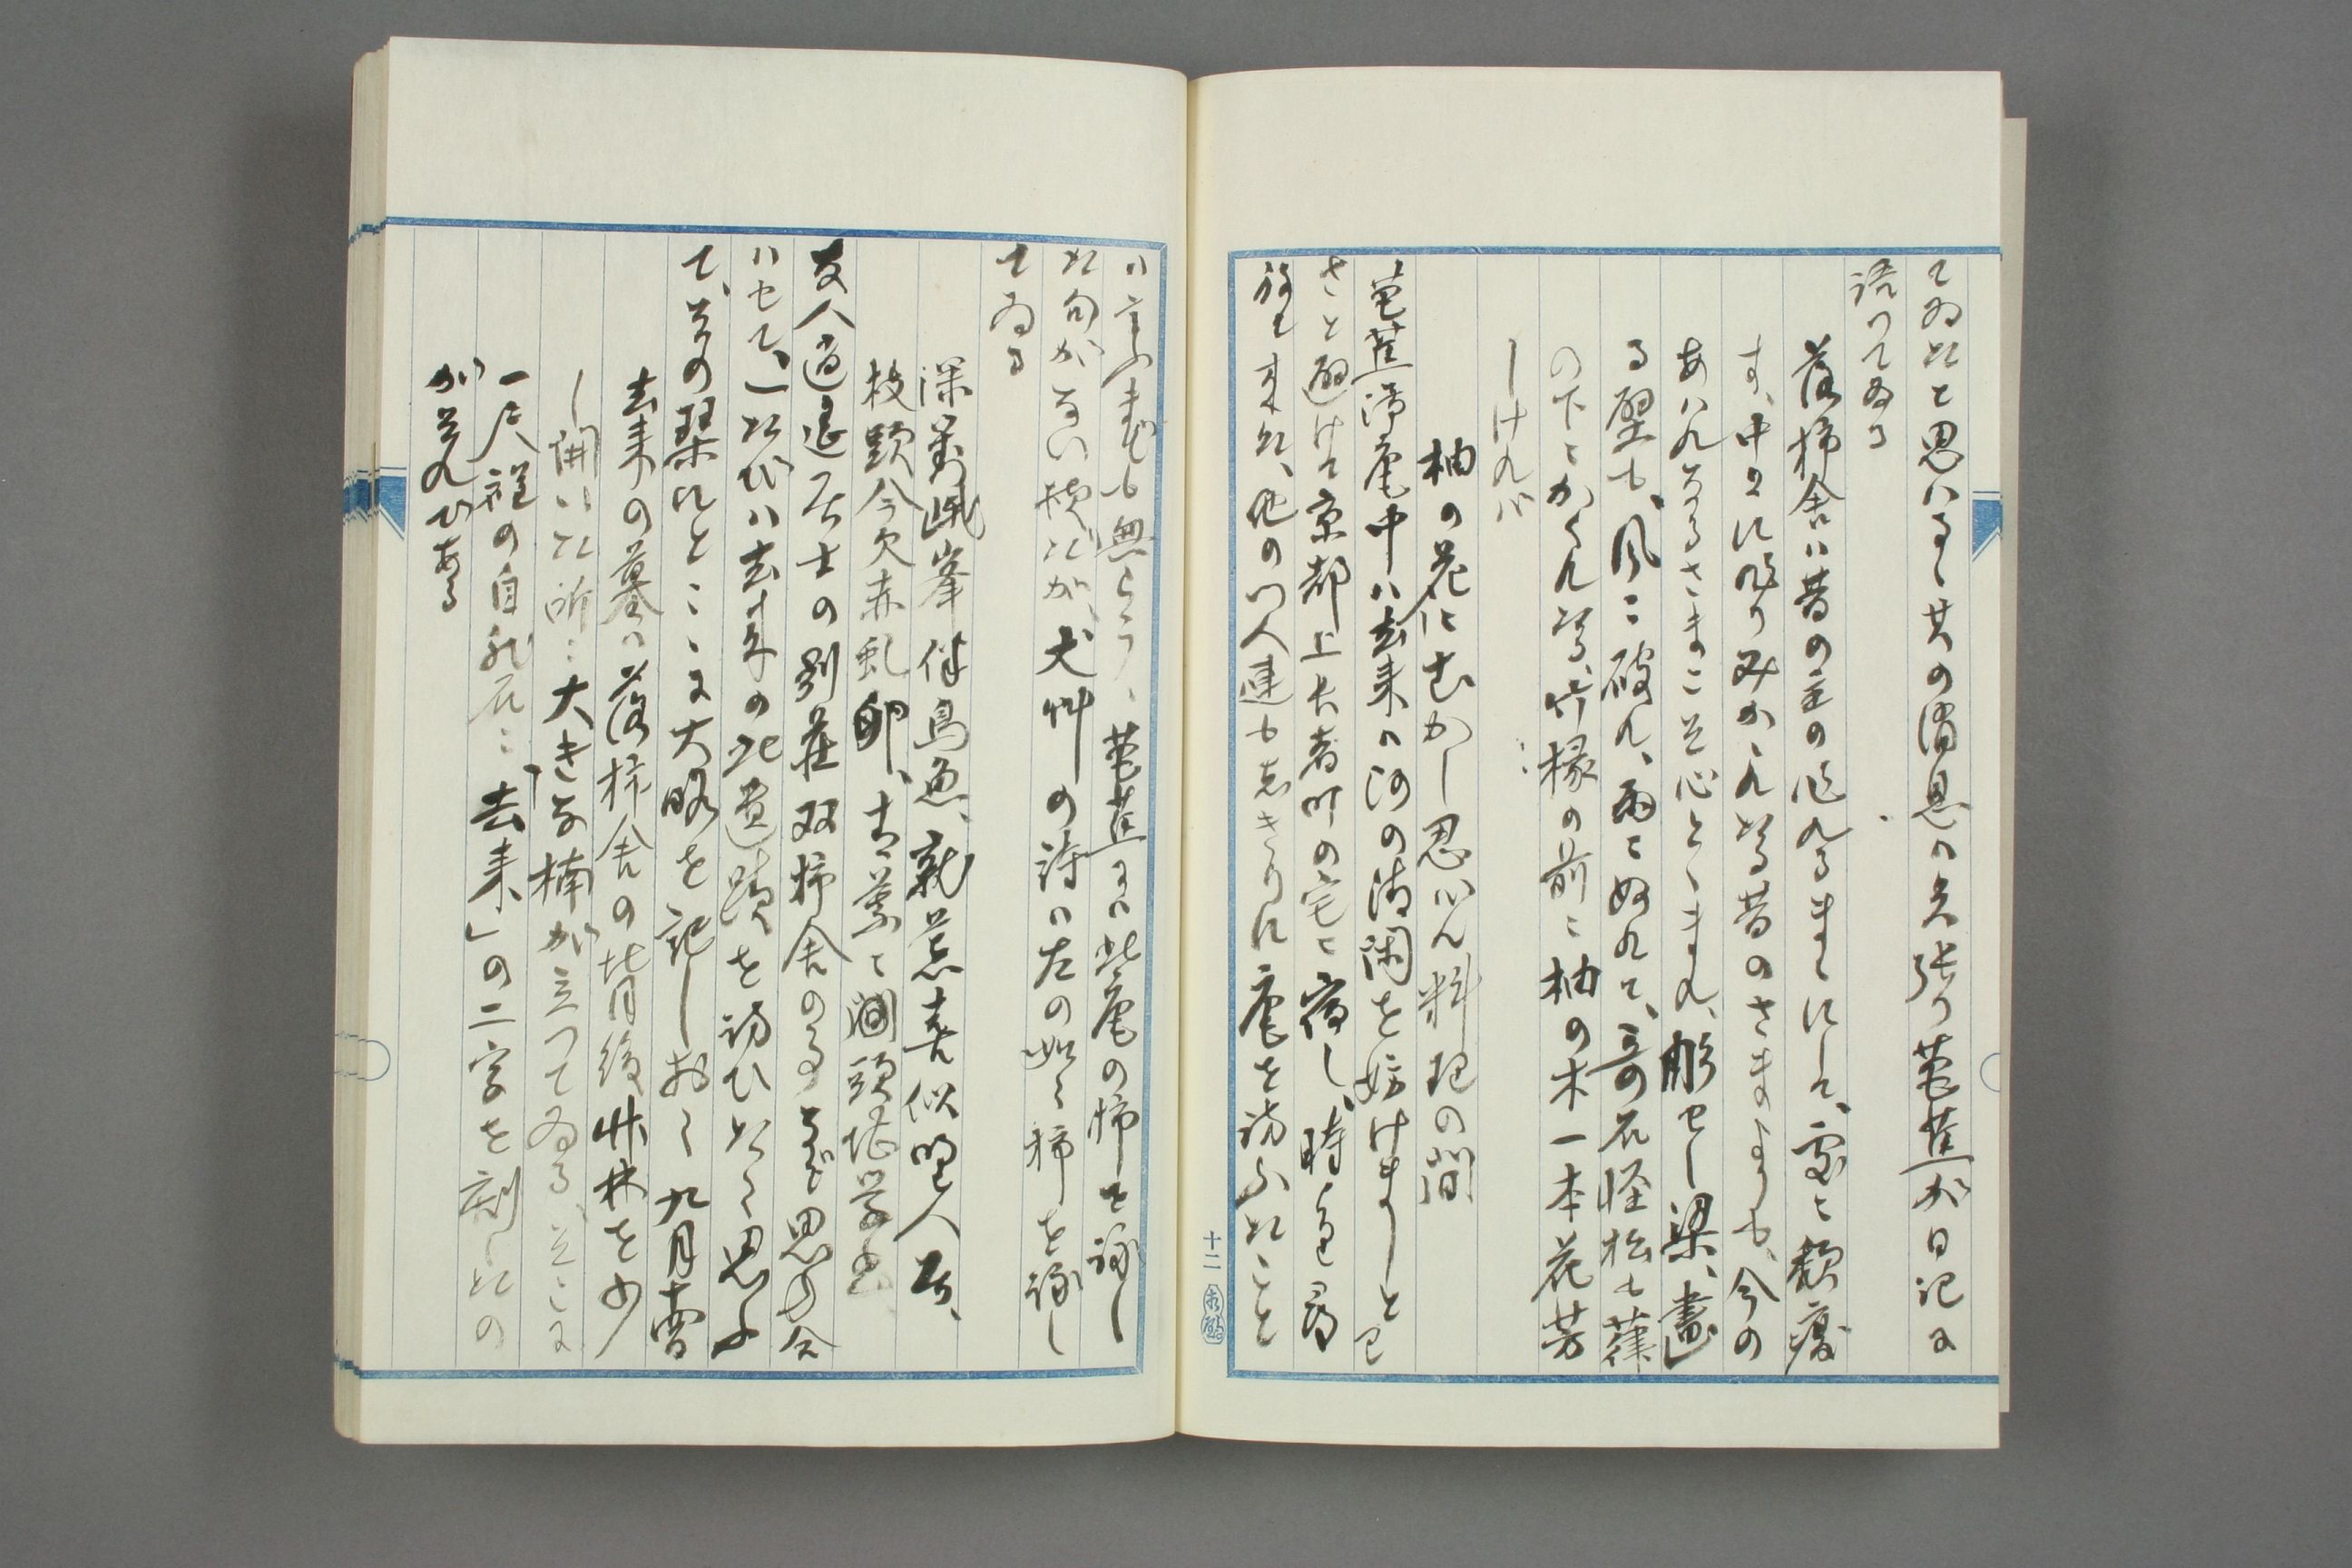 てゐたと思はるゝ其の消息は矢張り芭蕉が日記に
語つてゐる
落柿舎は昔の主の作れるまゝにして、處々頽廢
す、中々に作りみかゝれたる昔のさまよりも、今の
あはれなるさまこそ心とゝまれ、彫せし梁、畫
る壁も、風に破れ、雨にぬれて、奇石怪松も葎
の下にかくれたる、竹縁の前に柚の木一本花芳
しけれバ
柚の花にむかし思ハん料理の間
芭蕉滞庵中ハ去来ハ河の清閑を妨けまじと
さと避けて京都上長者町の宅に宿し、時を
旅し来た、他の門人達もしきりに庵を訪ふたこと
十二
ハ言ふまでも無らう、芭蕉には此庵の柿を詠し
た句がない様だが、丈艸の詩は左の如く柿を詠し
てゐる
深對峨峯伴鳥魚、就荒喜似野人居、
枝頭今欠赤虬卵、青葉
友人逍遥居士の別荘双柿舎のことなど思合
ハせて、一たびハ去来の此遺蹟を訪ひたく思ふ
て、其の栞にとこゝに大略を記しおく 九月
去来の墓ハ落柿舎の背後竹林を少
し開いた所に大きな楠が立つてゐる、そこに
一尺程の自然石に「去来」の二字を刻したの
がそれである